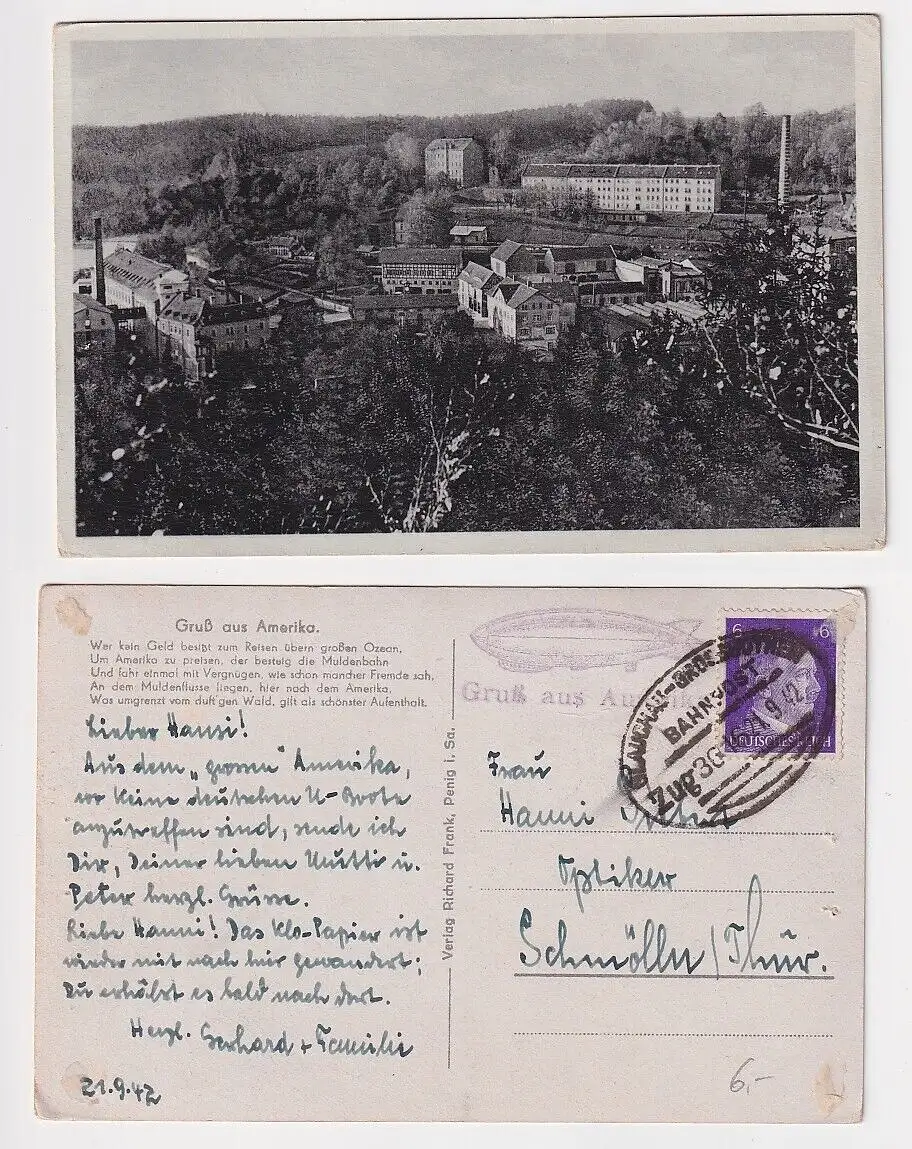 Gruß aus Amerika.
Wer kein Geld besitzt zum Reisen übern großen Ozean,
Um Amerika zu preisen, der besteig die Muldenbahn
Und fahr einmal mit Vergnügen, wie schon mancher Fremde sah,
An dem Muldenflusse liegen, hier nach dem Amerika,
Was umgrenzt vom duft'gen Wald, gilt als schönster Aufenthalt.
Lieber Hansi!
Aus dem „grossen" Amerika,
wo keine deutschen U-Boote
anzutreffen sind, sende ich
Dir, Deiner lieben Mutti u.
Peter herzl. Grüsse.
Liebe Hanni! Das Klo-Papier ist
wieder mit nach hier gewandert;
Du erhälst es bald nach dort.
Herzl. Gerhard + Familie
21.9.42
Verlag Richard Frank, Penig i. Sa.
Gruß aus
BAHNPOST
Zug 30
21.9.42
6 6
DEUTSCHES REICH
Frau
Hanni
Optiker
Schmölln/Thür.
6,-